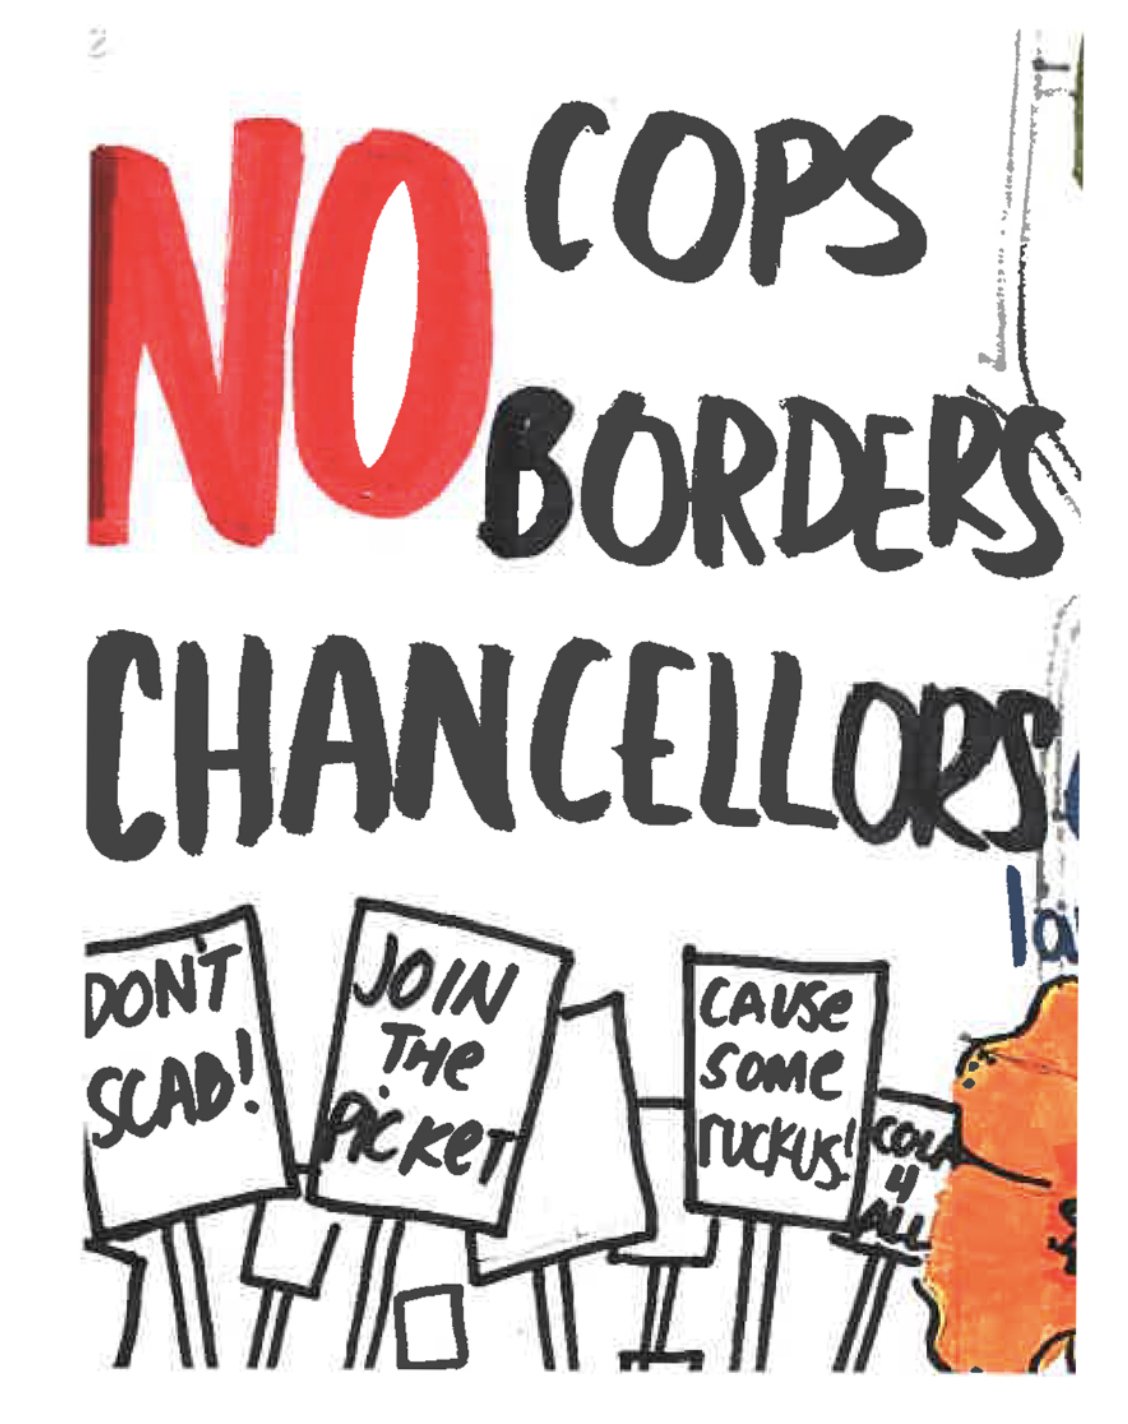 NO COPS
BORDERS
CHANCELLORS
DON'T
SCAB!
JOIN
THE
PICKET
CAUSE
SOME
RUCKUS!
COLA
4
ALL